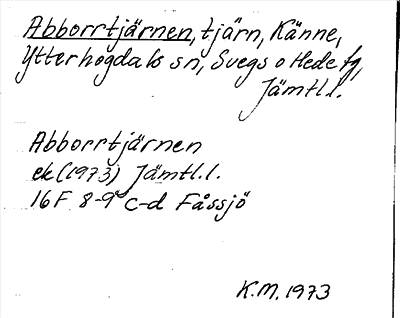 Abborrtjärnen, tjärn, Känne,
Ytterhogdals sn, Svegs o Hede tg,
Jämtl.l.
Abborrtjärnen
ek (1973) Jämtl.l.
16F 8-9 c-d Fåssjö
K.M. 1973